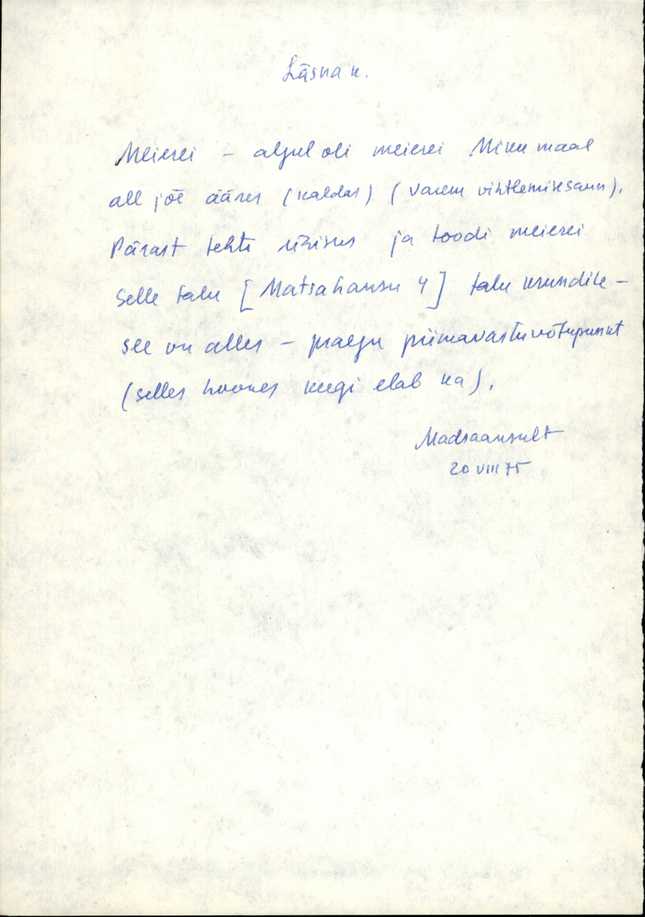 Läsna k.
Meierei – algul oli meierei Miku maal
all jõe ääres (kaldas) (varem vihtlemissaun).
Pärast tehti ühisus ja toodi meierei
selle talu [Matsahansu 4] talu krundile –
see on alles – praegu piimavastuvõtupunkt
(selles hoones keegi elab ka).
Madsaansult
20 VIII 75